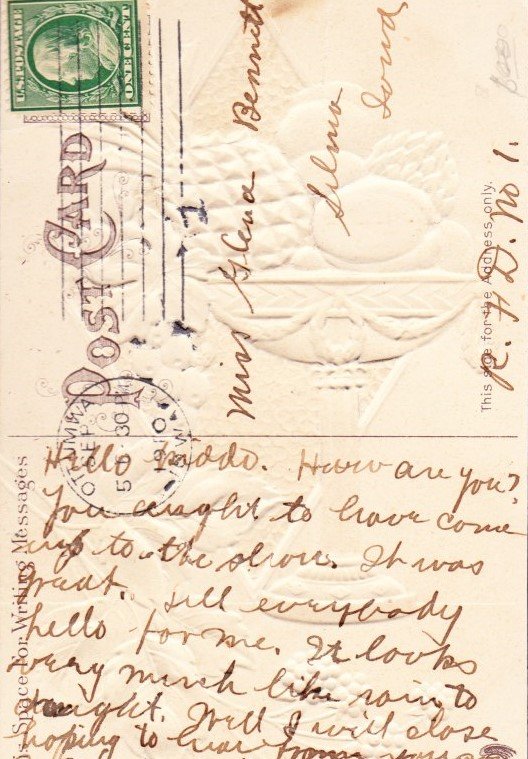 U.S. POSTAGE
ONE CENT
POST CARD
OTTUMWA
SEP 5
30 PM
1910
IOWA
1
Miss Glena Bennett
Selma
Iowa
R. F. D. No 1.
This side for the Address only.
Space for Writing Messages
Hello kiddo. How are you?
You aught to have come
up to the show. It was
great. Tell everybody
hello for me. It looks
very much like rain to
night. Well I will close
hoping to hear from you